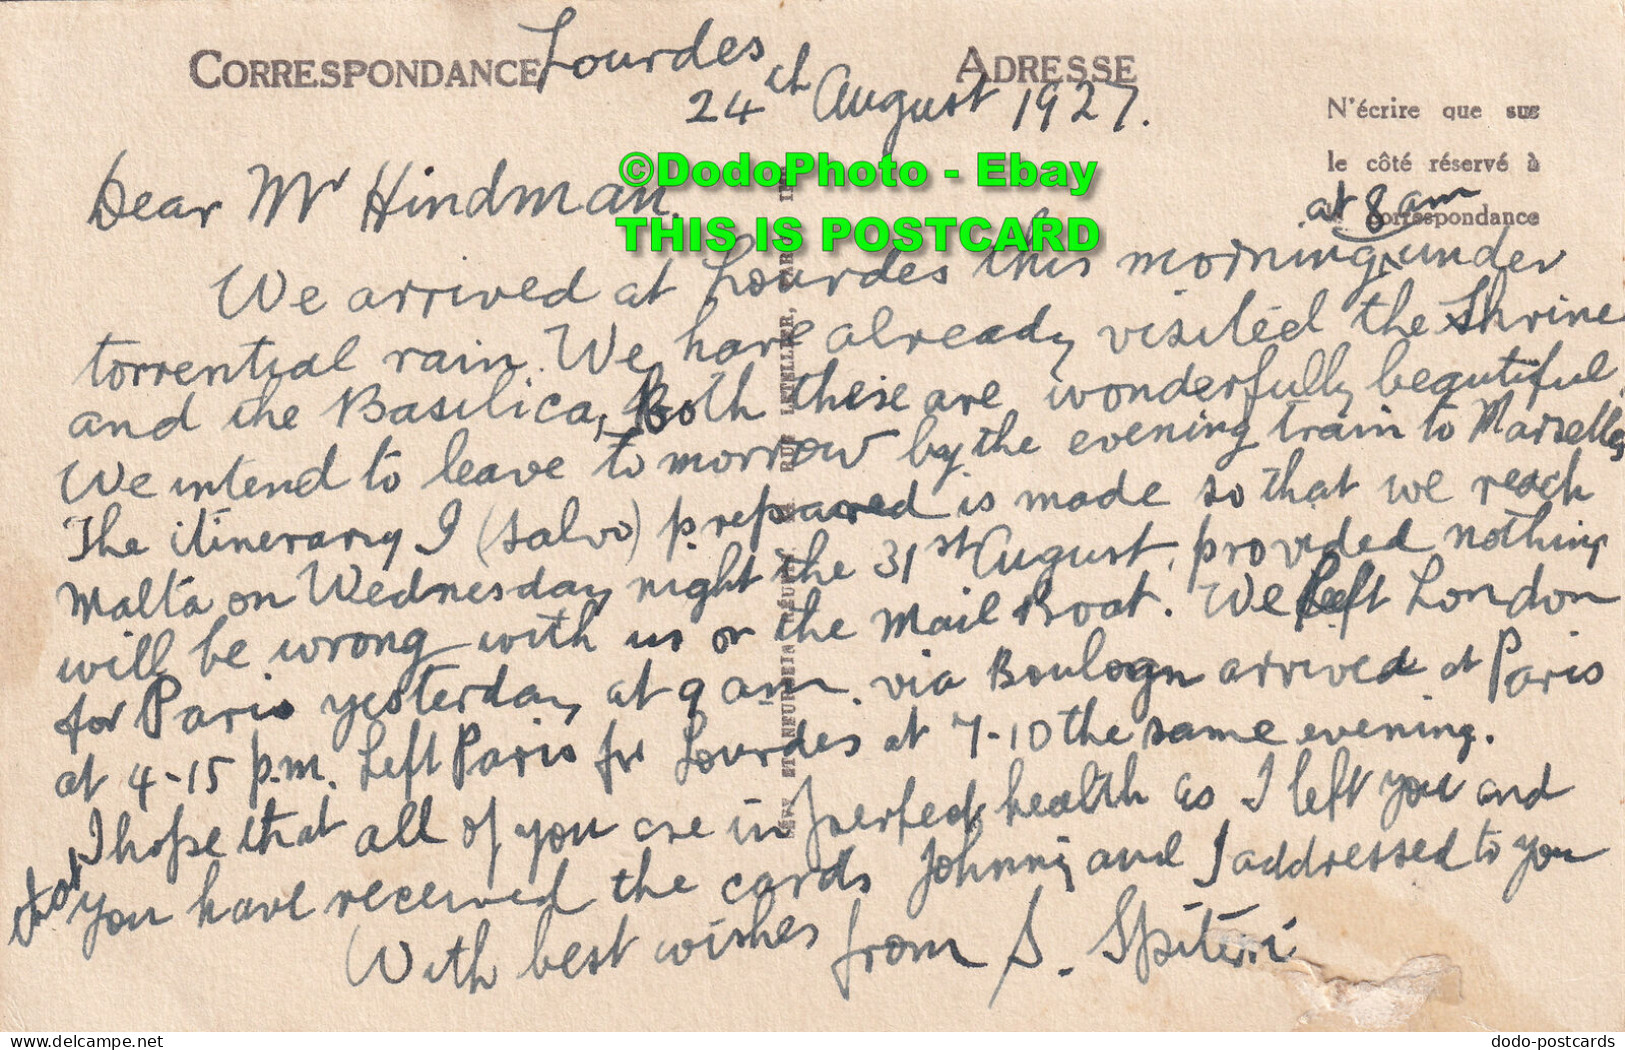 CORRESPONDANCE
ADRESSE
N'écrire que sur
le côté réservé à
correspondance
Lourdes
24th August 1927.
©DodoPhoto - Ebay
THIS IS POSTCARD
Dear Mr Hindman.
at 8 am
We arrived at Lourdes this morning under
torrential rain. We have already visited the Shrine
and the Basilica, Both these are wonderfully beautiful.
We intend to leave tomorrow by the evening train to Marseilles
The itinerary I (Salvo) prepared is made so that we reach
Malta on Wednesday night the 31st August, provided nothing
will be wrong with us or the Mail Boat. We left London
for Paris yesterday at 9 am. via Boulogn arrived at Paris
at 4-15 p.m. Left Paris for Lourdes at 7-10 the same evening.
I hope that all of you are in perfect health as I left you and
for you have received the cards Johnny and I addressed to you
With best wishes from S. Spiteri
RUE LETELLIER,
dodo-postcards
www.delcampe.net